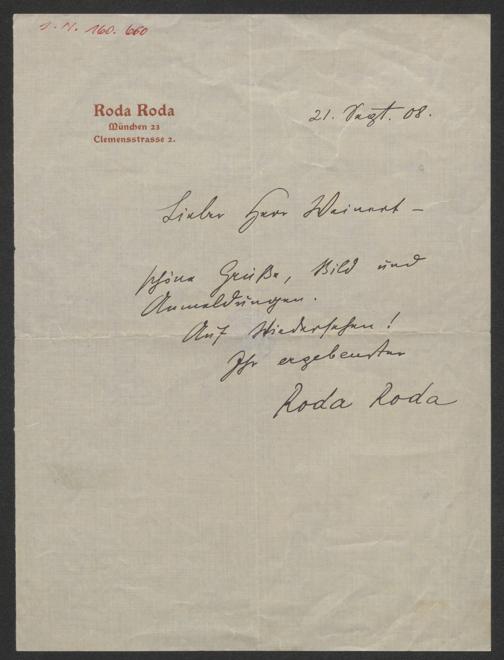 J. N. 160.660
Roda Roda
München 23
Clemensstrasse 2.
21. Sept. 08.
Lieber Herr Weinert –
schöne Grüße, Bild und
Anmeldungen.
Auf Wiedersehen!
Ihr ergebenster
Roda Roda